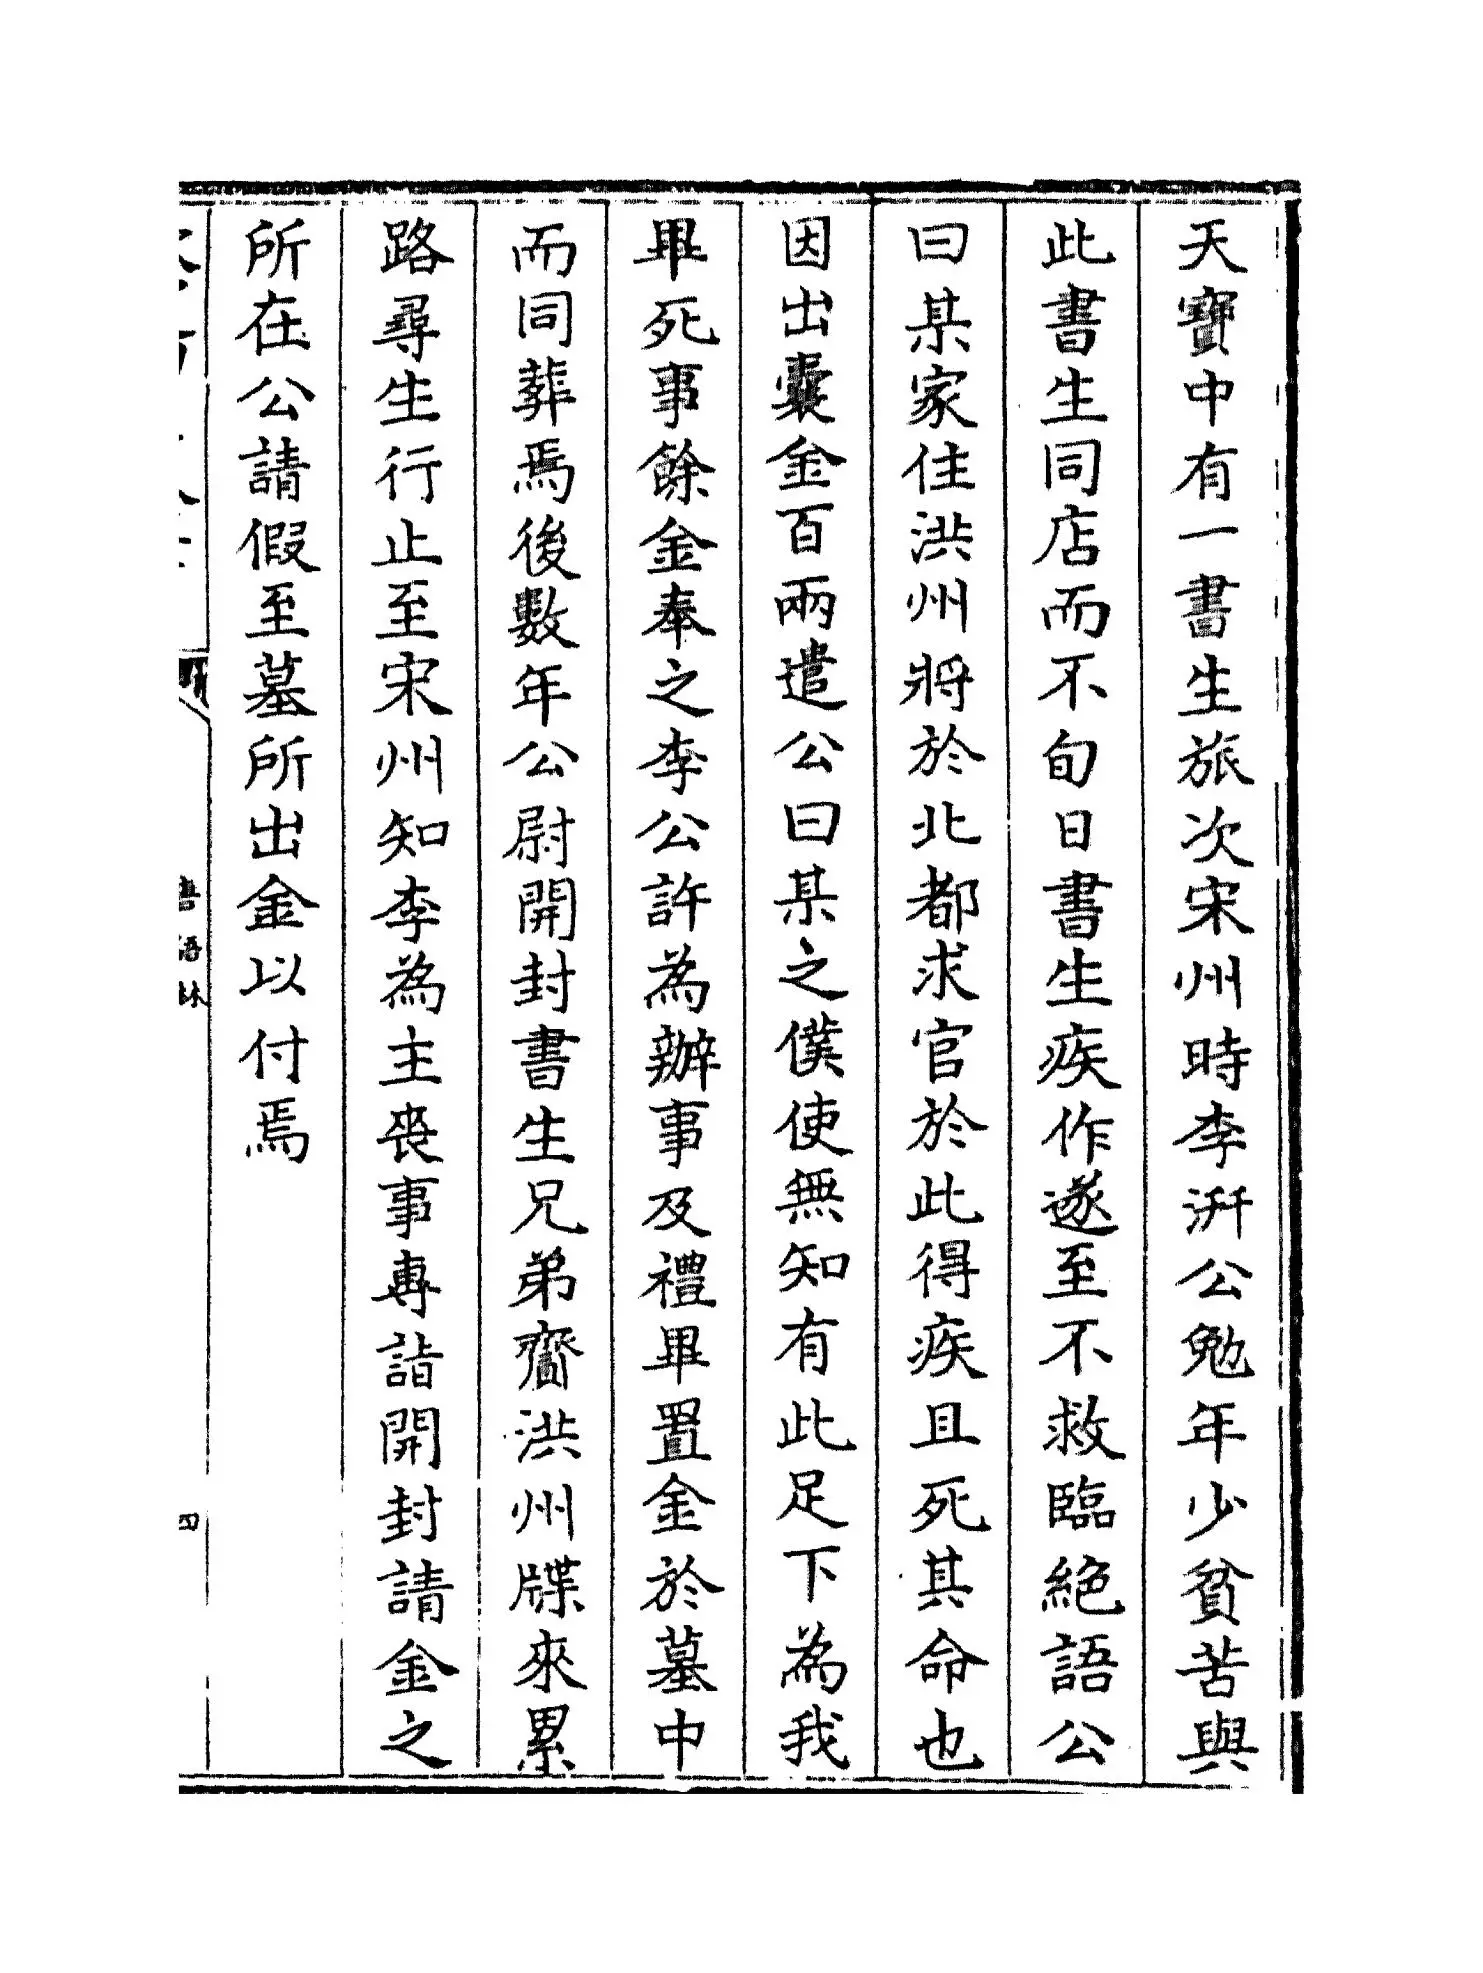 天寶中有一書生旅次宋州時李汧公勉年少貧苦與
此書生同店而不旬日書生疾作遂至不救臨絶語公
曰某家住洪州將於北都求官於此得疾且死其命也
因出囊金百兩遣公曰某之僕使無知有此足下為我
畢死事餘金奉之李公許為辦事及禮畢置金於墓中
而同葬焉後數年公尉開封書生兄弟齎洪州牒來累
路尋生行止至宋州知李為主喪事專詣開封請金之
所在公請假至墓所出金以付焉
語林
四